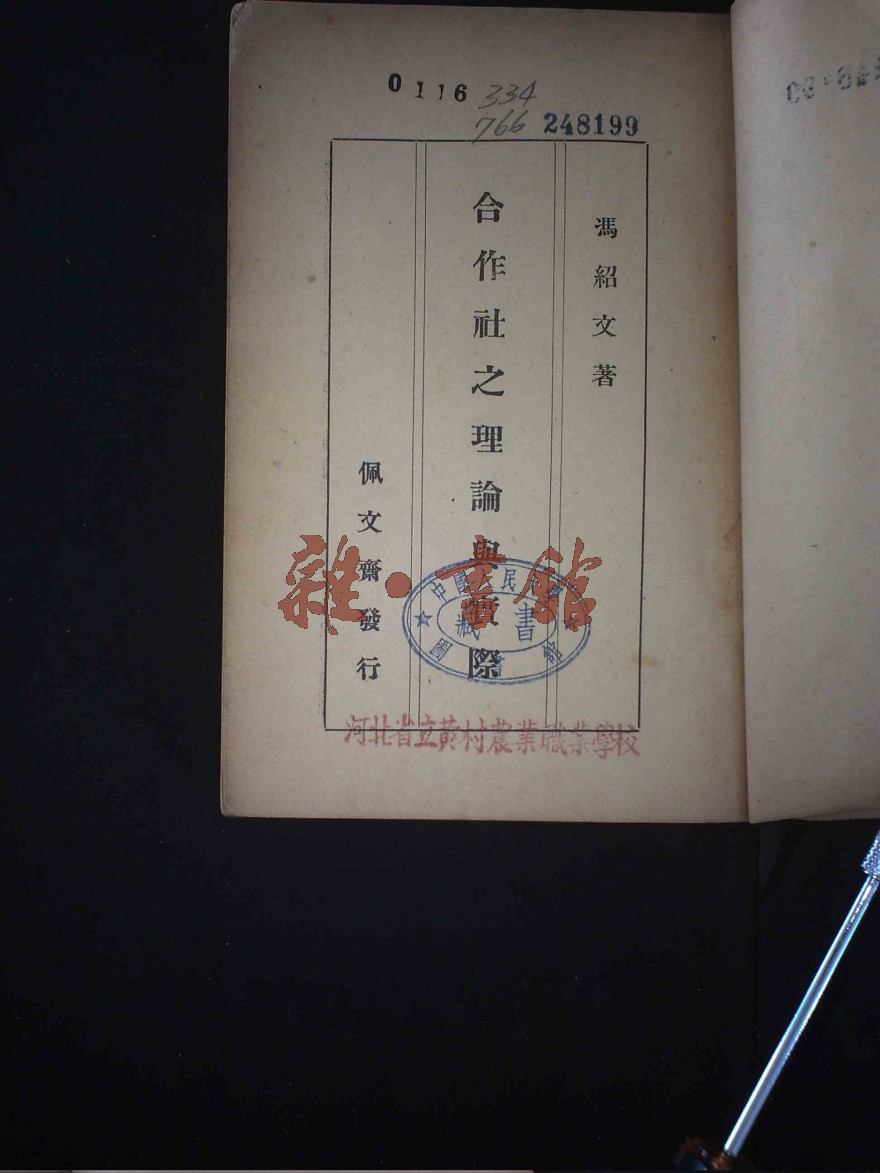 0116
334
766
248199
馮紹文著
合作社之理論與實際
佩文齋發行
中國人民大學
圖書館
藏書
河北省立黃村農業職業學校
雜·書館